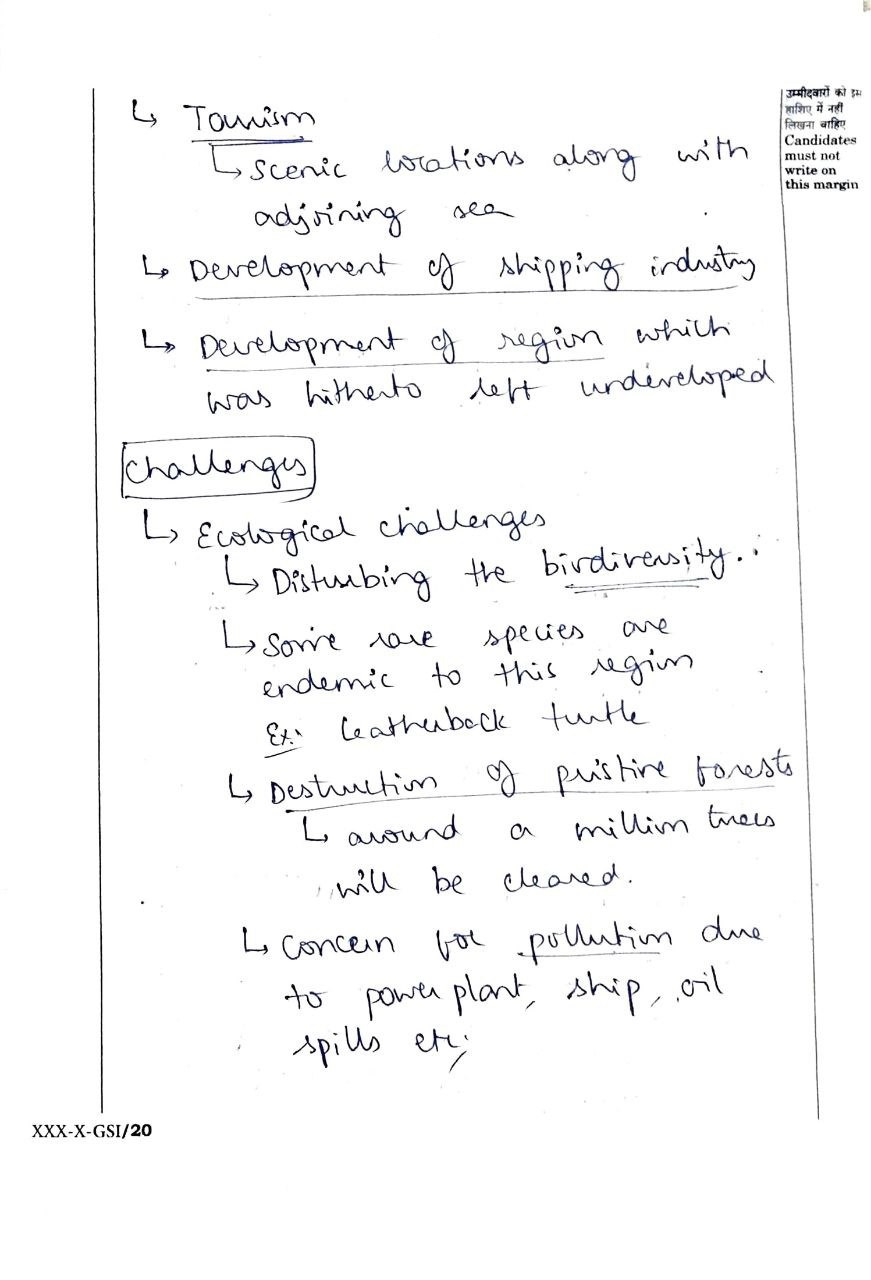 ↳ Tourism
↳ Scenic locations along with
adjoining sea
↳ Development of shipping industry
↳ Development of region which
was hitherto left undeveloped
Challenges
↳ Ecological challenges
↳ Disturbing the biodiversity..
↳ Some rare species are
endemic to this region
Ex: Leatherback turtle
↳ Destruction of pristine forests
↳ around a million trees
will be cleared.
↳ Concern for pollution due
to power plant, ship, oil
spills etc;
उम्मीदवारों को इस
हाशिए में नहीं
लिखना चाहिए
Candidates
must not
write on
this margin
XXX-X-GSI/20